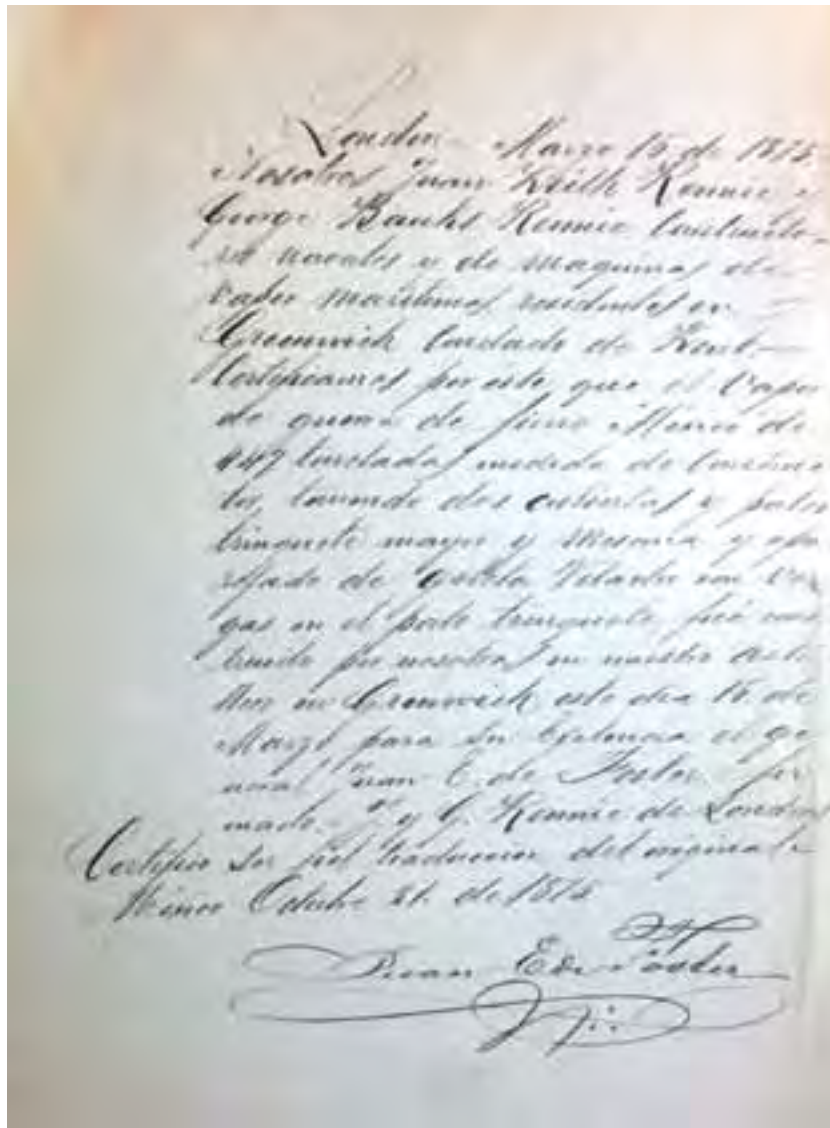 London Marzo 15 de 1875.
Nosotros Juan Keith Rennie y
George Banks Rennie Constructo-
res navales y de maquinas de
vapor maritimas residentes en
Greenwich Condado de Kent.
Certificamos por esto, que el Vapor
de guerra de fierro Mexico de
447 toneladas medida de
teniendo dos cubiertas y palos
trinquete mayor y Mesana y apa-
rejado de Goleta Volante con Ver
gas en el palo trinquete, fué cons
truido por nosotros en nuestro Asti-
llero en Greenwich este dia 15 de
Marzo para Su Exelencia el ge
neral Juan E. de Foster. fir
mado. y G. Rennie de Londres
Certifico Ser fiel traduccion del original
Mexico Octubre 21. de 1875
Juan E de Foster